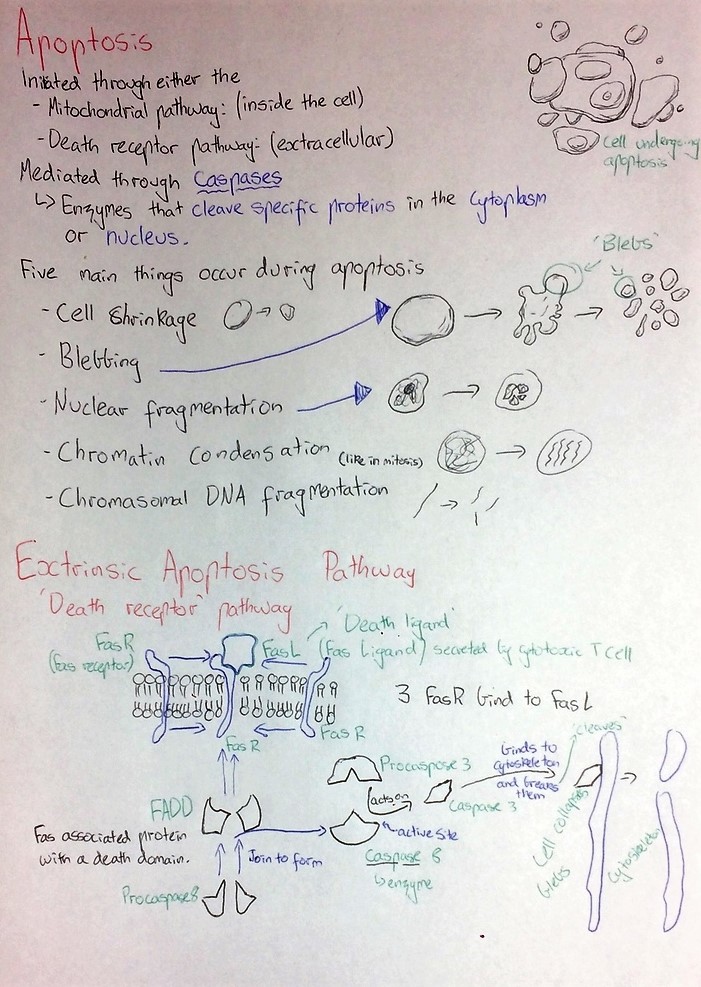 Apoptosis
Initiated through either the
- Mitochondrial pathway: (inside the cell)
- Death receptor pathway: (exctracellular)
Cell undergoing
apoptosis
Mediated through Caspases
↳ Enzymes that cleave specific proteins in the cytoplasm
or nucleus.
Five main things occur during apoptosis
"Blebs"
- Cell shrinkage
- Blebbing
- Nuclear fragmentation
- Chromatin Condensation (like in mitosis)
- Chromasomal DNA fragmentation
Exctrinsic Apoptosis Pathway
'Death receptor' pathway
'Death ligand'
FasR
(Fas receptor)
FasL
(Fas Ligand) secreted by cytotoxic T cell
3 FasR bind to FasL
FasR
FasR
"cleaves"
Procaspase 3
Binds to
cytoskeleton
and breaks
them
acts on
Caspase 3
FADD
Fas associated protein
with a death domain.
Join to form
active site
Caspase 8
↳ enzyme
Procaspase 8
Cell collapses
blebs
Cytoskeleton